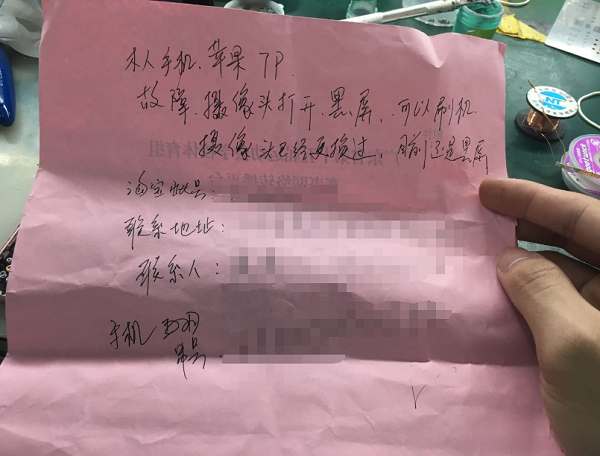 本人手机、苹果 7P.
故障、摄像头打开黑屏、可以刷机.
摄像头已经更换过, 还是黑屏
淘宝账号:
联系地址:
联系人:
手机